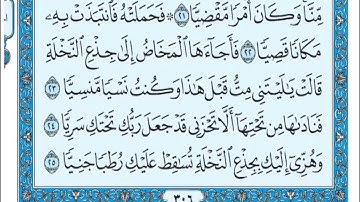 مِّنَّا وَكَانَ أَمْرًا مَّقْضِيًّا ﴿٢١﴾ ۞ فَحَمَلَتْهُ فَانتَبَذَتْ بِهِۦ
مَكَانًا قَصِيًّا ﴿٢٢﴾ فَأَجَآءَهَا ٱلْمَخَاضُ إِلَىٰ جِذْعِ ٱلنَّخْلَةِ
قَالَتْ يَٰلَيْتَنِى مِتُّ قَبْلَ هَٰذَا وَكُنتُ نَسْيًا مَّنسِيًّا ﴿٢٣﴾
فَنَادَىٰهَا مِن تَحْتِهَآ أَلَّا تَحْزَنِى قَدْ جَعَلَ رَبُّكِ تَحْتَكِ سَرِيًّا ﴿٢٤﴾
وَهُزِّىٓ إِلَيْكِ بِجِذْعِ ٱلنَّخْلَةِ تُسَٰقِطْ عَلَيْكِ رُطَبًا جَنِيًّا ﴿٢٥﴾
٣٠٦